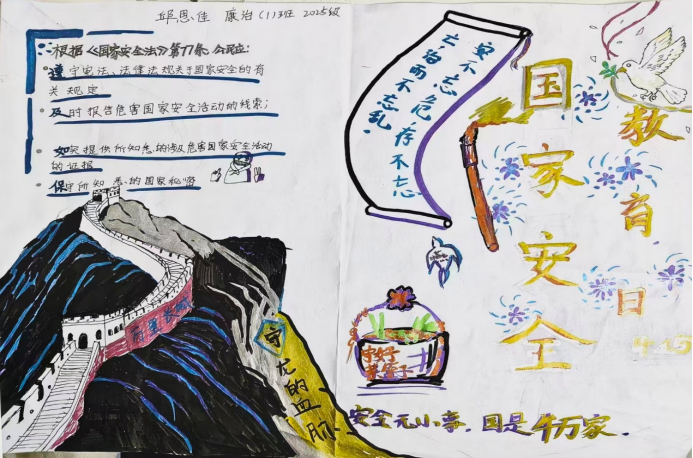 邱恩佳 康治(1)班 2025级
根据《国家安全法》第77条,公民应:
遵守宪法、法律法规关于国家安全的有
关规定
及时报告危害国家安全活动的线索;
如实提供所知悉的涉及危害国家安全活动
的证据
保守所知悉的国家秘密
安不忘危,存不忘
亡,治而不忘乱.
国家安全
教育日
4.15
守
龙的血脉
守好
安全无小事,国是千万家.